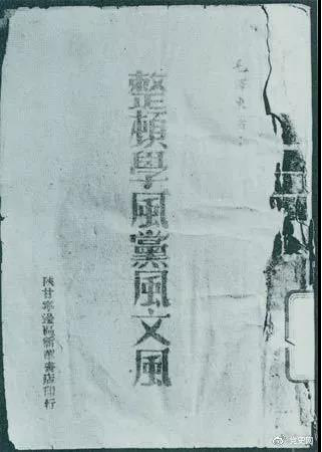 毛澤東
整頓學風黨風文風
陝甘寧邊區新華書店印行
党史网